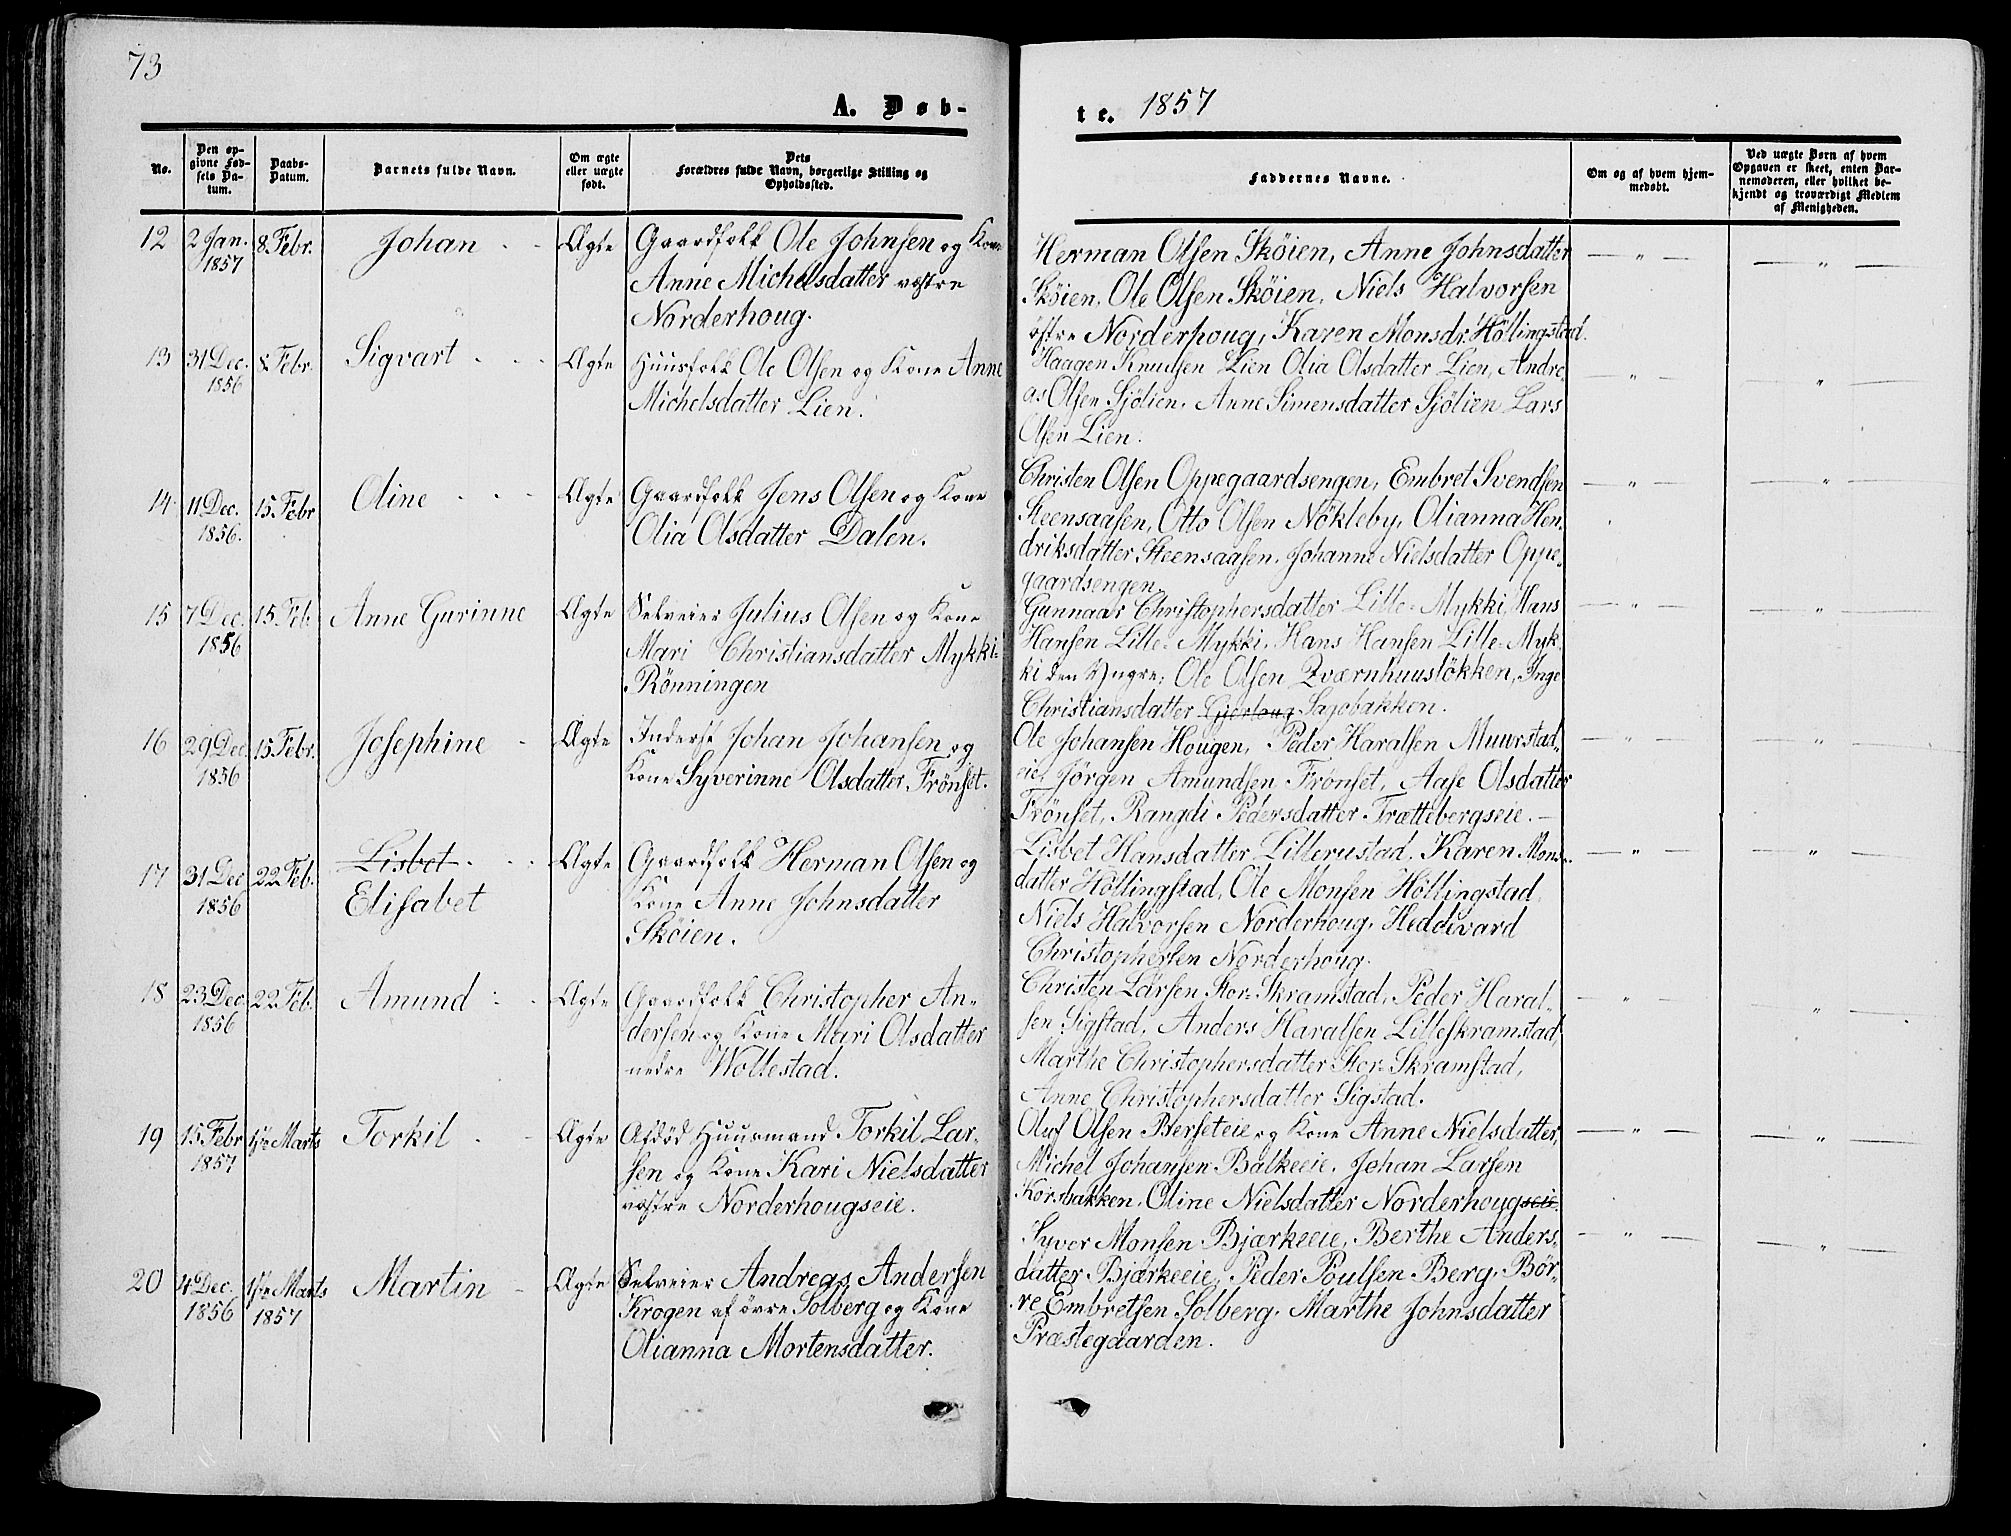 73
A. Døb-
te. 1857
No.
Den op-
givne Fød-
sels Da-
tum.
Daabs-
Datum.
Barnets fulde Navn.
Om ægte
eller uægte
født.
Dets
Forældres fulde Navn, borgerlige Stilling og
Opholdssted.
Faddernes Navne.
Om og af hvem hjem-
medøbt.
Ved uægte Børn af hvem
Opgaven er skeet, enten Bar-
nemoderen, eller hvilket be-
kjendt og troværdigt Medlem
af Menigheden.
12 2 Jan. 8 Febr. Johan Ægte Gaardfolk Ole Johnsen og Kone
1857 Anne Michelsdatter vestre
Norderhoug.
Herman Olsen Sköien, Anne Johnsdatter
Sköien, Ole Olsen Sköien, Niels Halvorsen
östre Norderhoug, Karen Monsdr. Höllingstad.
13 31 Dec. 8 Febr. Sigvart Ægte Huusfolk Ole Olsen og Kone Anne
1856 Michelsdatter Lien.
Haagen Knudsen Lien Olia Olsdatter Lien, Andre-
as Olsen Sjölien, Anne Simensdatter Sjölien Lars
Olsen Lien.
14 11 Dec. 15 Febr Oline Ægte Gaardfolk Jens Olsen og Kone
1856. Olia Olsdatter Dalen.
Christen Olsen Oppegaardsengen, Embret Svendsen
Steensaasen, Otto Olsen Nökleby, Olianna Hen-
driksdatter Steensaasen, Johanne Nielsdatter Oppe-
gaardsengen.
15 7 Dec. 15 Feb. Anne Gurinne Ægte Selveier Julius Olsen og Kone
1856 Mari Christiansdatter Mykki-
Rönningen
Gunnaar Christophersdatter Lille-Mykki, Hans
Hansen Lille-Mykki, Hans Hansen Lille-Myk-
ki den Yngre, Ole Olsen Qværnhuuslökken, Inge
Christiansdatter Gjerloug Sajobakken.
16 29 Dec 15 Febr. Josephine Ægte Inderst Johan Johansen og
1856 Kone Syverinne Olsdatter Frönset.
Ole Johansen Hougen, Peder Haralsen Muurstad-
eie, Jörgen Amundsen Frönset, Aase Olsdatter
Frönset, Rangdi Pedersdatter Trættebergseie.
17 31 Dec 22 Feb. Lisbet Ægte Gaardfolk Herman Olsen og
1856 Elisabet Kone Anne Johnsdatter
Sköien.
Lisbet Hansdatter Lillerustad, Karen Mons-
datter Höllingstad, Ole Monsen Höllingstad,
Niels Halvorsen Norderhoug, Heddevard
Christophersen Norderhoug.
18 23 Dec. 22 Feb. Amund Ægte Gaardfolk Christopher An-
1856 dersen og Kone Mari Olsdatter
nedre Wollestad.
Christen Larsen Stor-Skramstad, Peder Haral-
sen Sigstad, Anders Haralsen Lilleskramstad,
Marthe Christophersdatter Stor-Skramstad,
Anne Christophersdatter Sigstad.
19 15 Febr 1ste Marts Torkil Ægte Afdöd Huusmand Torkil Lar-
1857 sen og Kone Kari Nielsdatter
vestre Norderhougseie.
Oluf Olsen Berseteie og Kone Anne Nielsdatter,
Michel Johansen Balkeeie, Johan Larsen
Korsbakken, Oline Nielsdatter Norderhougseie.
20 4 Dec. 1ste Marts Martin Ægte Selveier Andreas Andersen
1856 1857 Krogen af övre Solberg og Kone
Olianna Mortensdatter.
Syver Monsen Bjærkeeie, Berthe Anders-
datter Bjærkeeie, Peder Poulsen Berg, Bör-
re Embretsen Solberg, Marthe Johnsdatter
Præstegaarden.